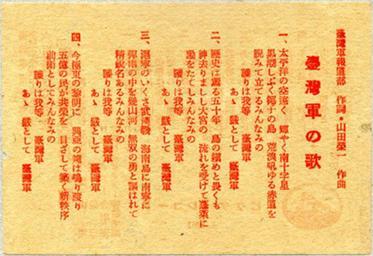 臺灣軍報道部 作詞・山田榮一 作曲
臺灣軍の歌
一、太平洋の空遠く 輝やく南十字星
黒潮しぶく椰子の島 荒浪吼ゆる赤道を
睨みて立てるみんなみの
護りは我等 臺灣軍
あゝ 嚴として 臺灣軍
二、歴史は薫る五十年 島の鎭めと畏くも
神去りましし大宮の 流れを受けて蓬萊に
勲をたてしみんなみの
護りは我等 臺灣軍
あゝ 嚴として 臺灣軍
三、滬寧のいくさ武漢戰 海南島に南寧に
彈雨の中を幾山河 無双の勇と謳はれて
精鋭名あるみんなみの
護りは我等 臺灣軍
あゝ 嚴として 臺灣軍
四、今極東の黎明に 興亞の鐘は鳴り渡り
五億の民が共榮を 目ざして築く新秩序
前衛としてみんなみの
護りは我等 臺灣軍
あゝ 嚴として 臺灣軍